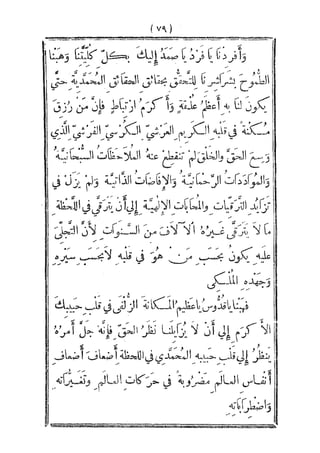 ( ٧٩ )
وَأَفْرِدْنَا يَا فَرْدُ يَا صَمَدُ إِلَيْكَ بِكُلِّ كُلِّيَّتِنَا وَهَبْنَا
الطُّمُوحَ بِسَرَائِرِنَا لِلتَّحَقُّقِ بِحَقَائِقِ الحَقَائِقِ المُحَمَّدِيَّةِ حَتَّى
يَكُونَ لَنَا بِهِ أَعْظَمُ عُلْقَةٍ وَأَكْرَمُ ارْتِبَاطٍ فَإِنَّ مَنْ رُزِقَ
مُسْكَنَةً فِي قَلْبِهِ الكَرِيمِ العَرْشِيِّ الكُرْسِيِّ القُرْشِيِّ الَّذِي
وَسِعَ الحَقَّ وَالخَلْقَ لَمْ تَنْقَطِعْ عَنْهُ المُلَاحَظَاتُ السُّبْحَانِيَّةُ
وَالمُوَادَدَاتُ الرَّحْمَانِيَّةُ وَالإِفَاضَاتُ الذَّاتِيَّةُ وَلَمْ يَزَلْ فِي
تَزَايُدِ التَّرَقِّيَاتِ وَالمُحَابَاتِ الإِلَهِيَّةِ إِلَى أَنْ يَتَرَقَّى فِي اللَّحْظَةِ
مَا لَا يَتَرَقَّى غَيْرُهُ آلَافَ آلَافٍ مِنَ السَّنَوَاتِ لِأَنَّ التَّجَلِّيَ
عَلَيْهِ يَكُونُ بِحَسَبِ مَنْ هُوَ فِي قَلْبِهِ لَا بِحَسَبِ سَيْرِهِ
وَجَهْدِهِ المُلْكِيِّ
فَهَبْنَا يَا قُدُّوسُ يَا عَظِيمُ المَكَانَةَ الزُّلْفَى فِي قَلْبِ حَبِيبِكَ
الأَكْرَمِ إِلَى أَنْ لَا يُزَايِلَنَا نَظَرُ الحَقِّ فَإِنَّهُ جَلَّ أَمْرُهُ
يَنْظُرُ إِلَى قَلْبِ حَبِيبِهِ المُحَمَّدِيِّ فِي اللَّحْظَةِ أَضْعَافَ أَضْعَافِ
أَنْفَاسِ العَالَمِ مَضْرُوبَةً فِي حَرَكَاتِ العَالَمِ وَتَغَيُّرَاتِهِ
وَاضْطِرَابَاتِهِ